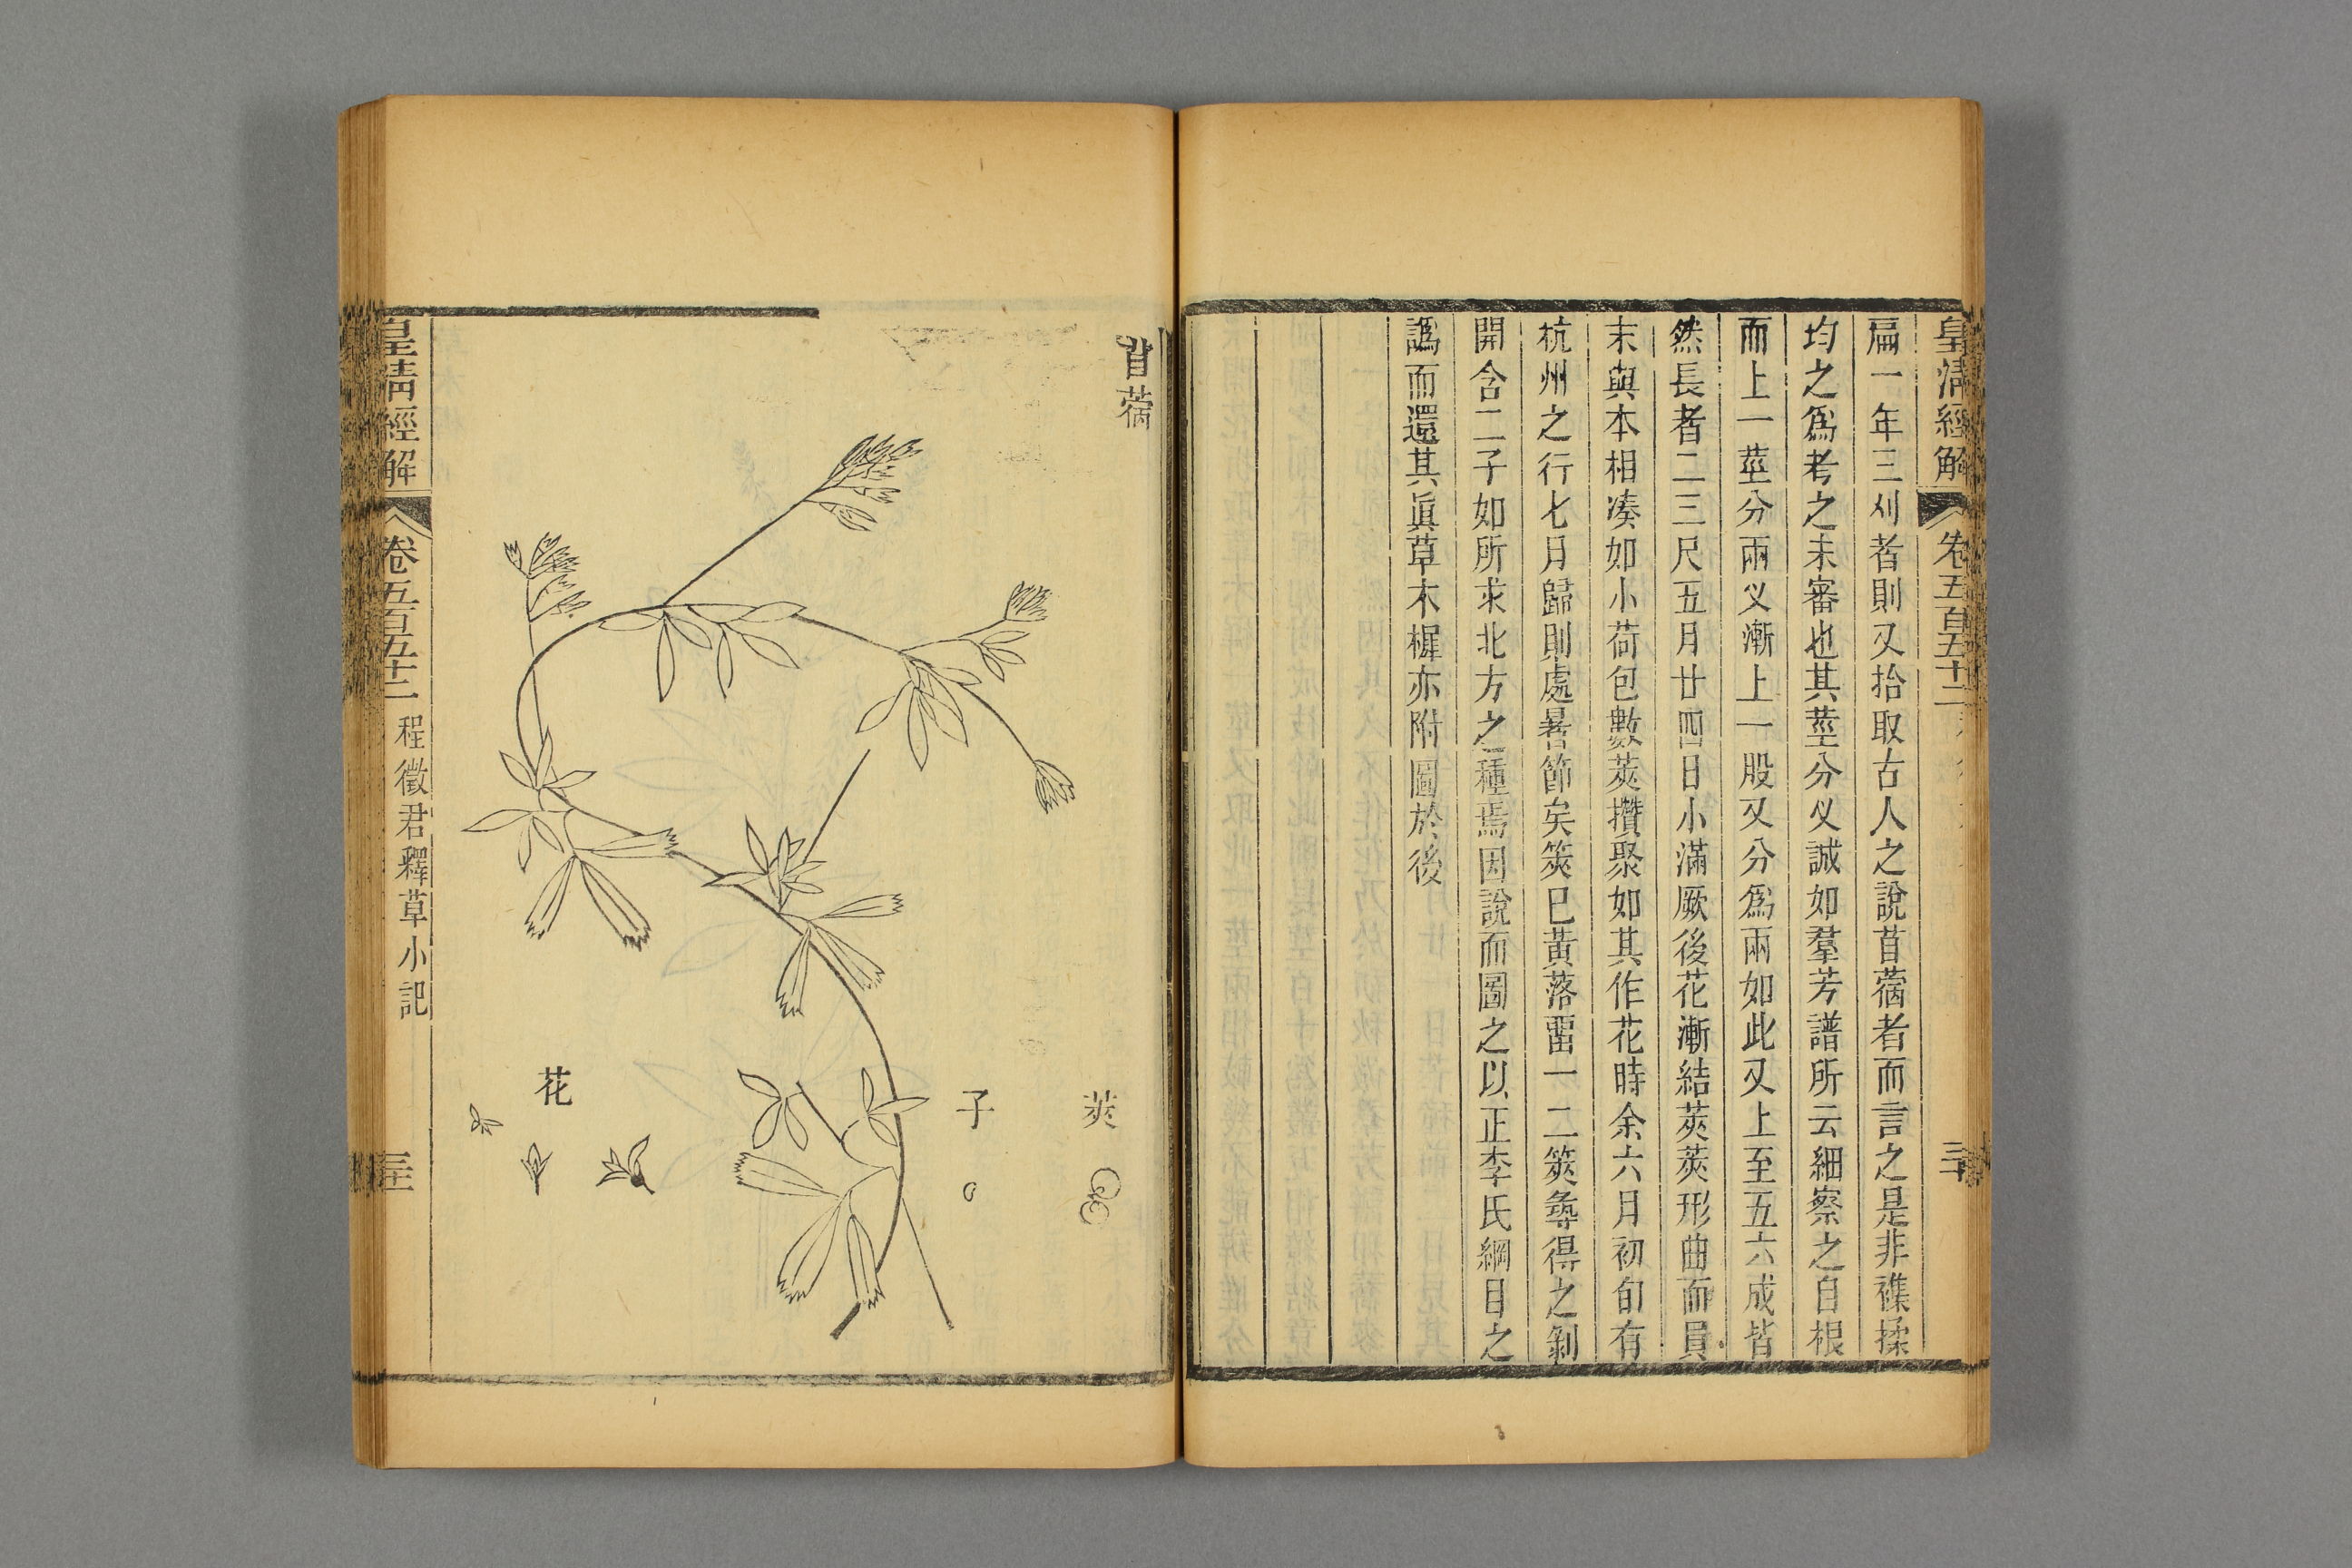 皇清經解
卷五百五十二
三十
扁一年三刈者則又拾取古人之說苜蓿者而言之是非襍揉
均之爲考之未審也其莖分义誠如羣芳譜所云細察之自根
而上一莖分兩义漸上一股又分爲兩如此又上至五六成皆
然長者二三尺五月廿四日小滿厥後花漸結莢莢形曲而員
末與本相湊如小荷包數莢攢聚如其作花時余六月初旬有
杭州之行七月歸則處暑節矣筴巳黃落畱一二筴㝷得之剝
開含二子如所求北方之種焉因說而圖之以正李氏綱目之
譌而還其眞草木樨亦附圖於後
苜蓿
莢
子
花
皇清經解
卷五百五十二
程徵君釋草小記